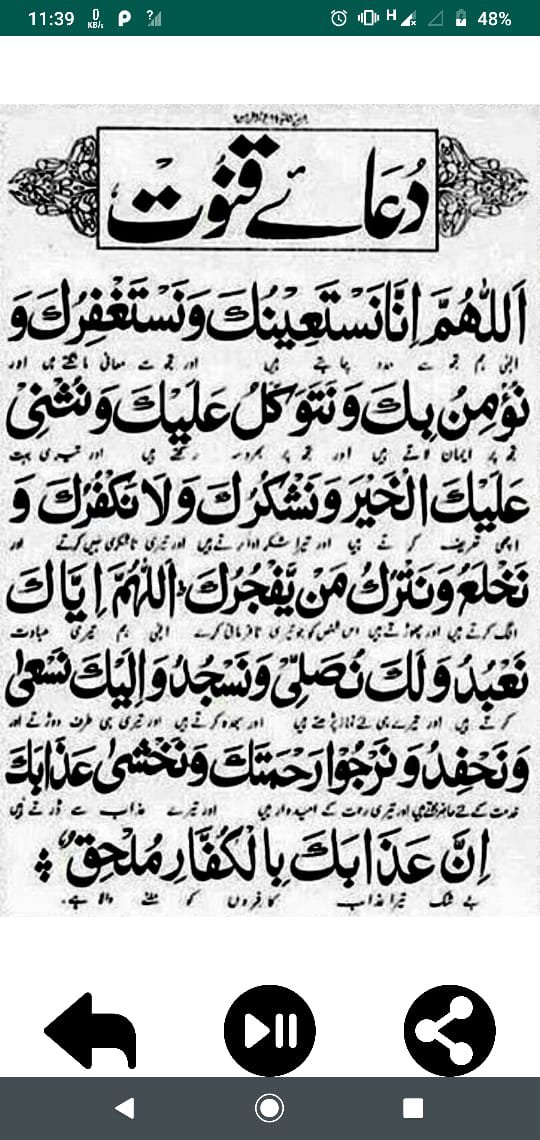 11:39 0 KB/s P ? H 48%
دُعَائے قنُوت
اَللّٰهُمَّ اِنَّا نَسْتَعِيْنُكَ وَنَسْتَغْفِرُكَ وَ
الٰہی ہم تجھ سے مدد چاہتے ہیں اور تجھ سے معافی مانگتے ہیں اور
نُؤْمِنُ بِكَ وَنَتَوَكَّلُ عَلَيْكَ وَنُثْنِیْ
تجھ پر ایمان لاتے ہیں اور تجھ پر بھروسہ رکھتے ہیں اور تیری بہت
عَلَيْكَ الْخَيْرَ وَنَشْكُرُكَ وَلَا نَكْفُرُكَ وَ
اچھی تعریف کرتے ہیں اور تیرا شکر ادا کرتے ہیں اور تیری ناشکری نہیں کرتے اور
نَخْلَعُ وَنَتْرُكُ مَنْ يَّفْجُرُكَ ؕ اَللّٰهُمَّ اِيَّاكَ
الگ کرتے ہیں اور چھوڑتے ہیں اس شخص کو جو تیری نافرمانی کرے الٰہی ہم تیری عبادت
نَعْبُدُ وَلَكَ نُصَلِّیْ وَنَسْجُدُ وَاِلَيْكَ نَسْعٰی
کرتے ہیں اور تیرے ہی لئے نماز پڑھتے ہیں اور سجدہ کرتے ہیں اور تیری ہی طرف دوڑتے اور
وَنَحْفِدُ وَنَرْجُوْا رَحْمَتَكَ وَنَخْشٰی عَذَابَكَ
خدمت کے لئے حاضر ہوتے ہیں اور تیری رحمت کے امیدوار ہیں اور تیرے عذاب سے ڈرتے ہیں
اِنَّ عَذَابَكَ بِالْكُفَّارِ مُلْحِقٌ
بے شک تیرا عذاب کافروں کو ملنے والا ہے۔